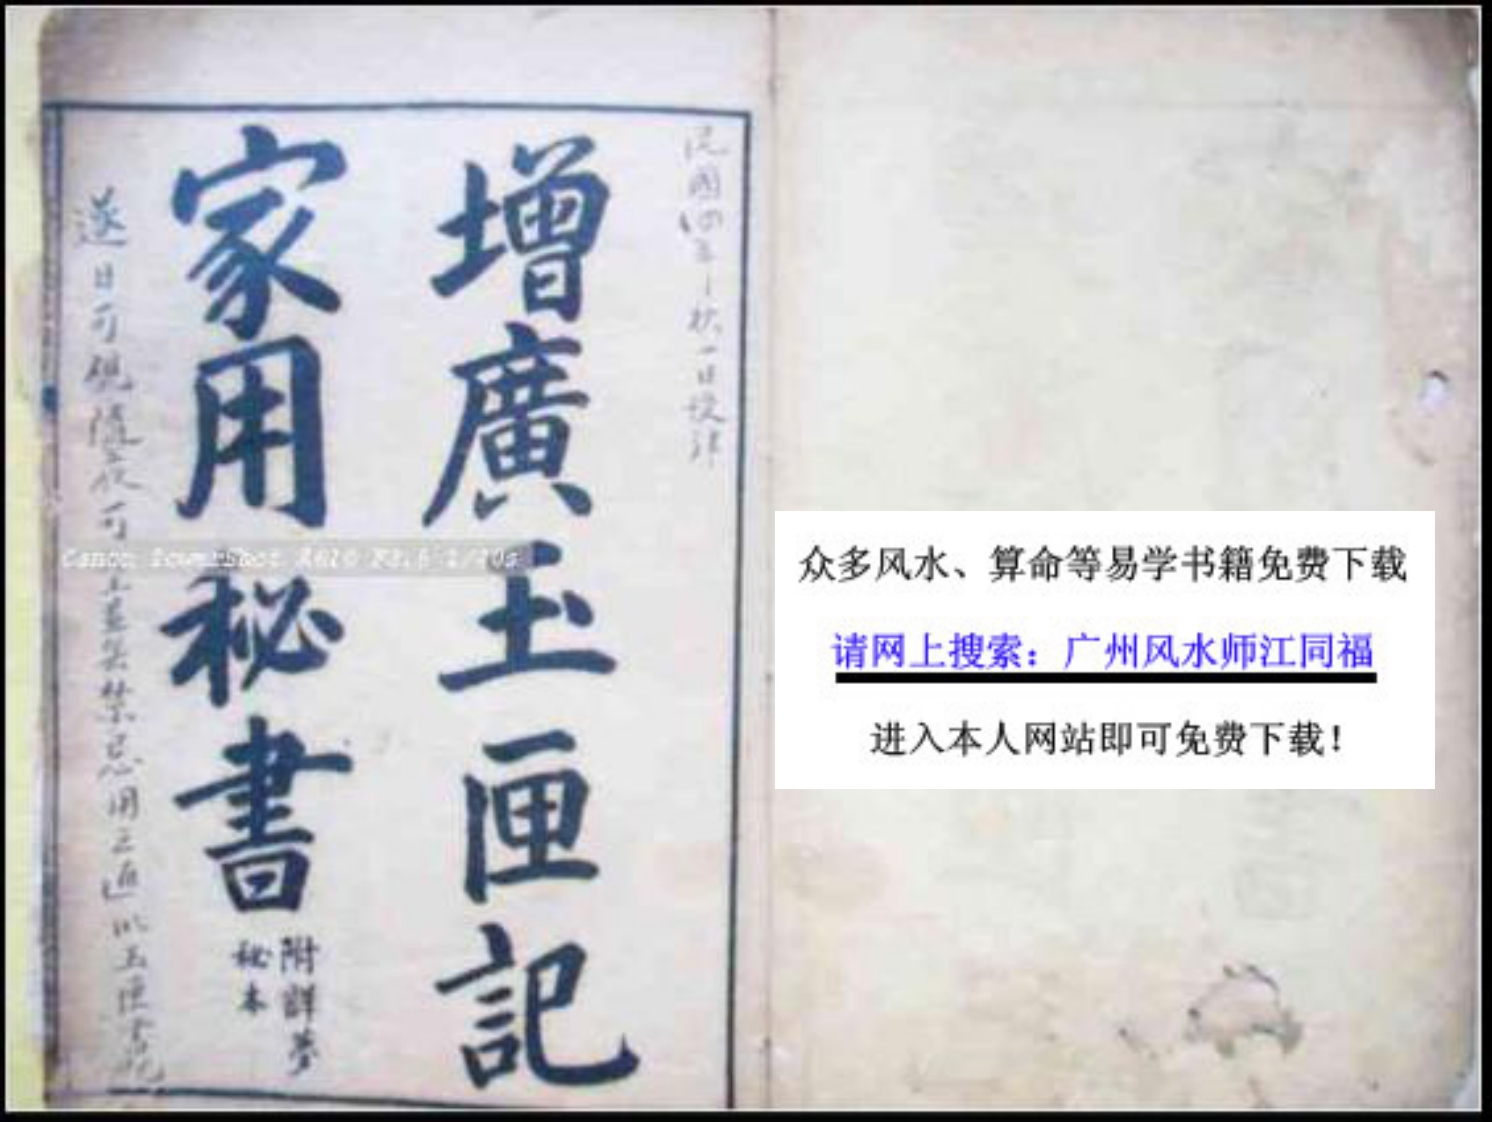 增廣玉匣記
家用秘書
附詳夢
秘本
民國四年
Canon PowerShot A610 F3.5 1/40s
众多风水、算命等易学书籍免费下载
请网上搜索：广州风水师江同福
进入本人网站即可免费下载！